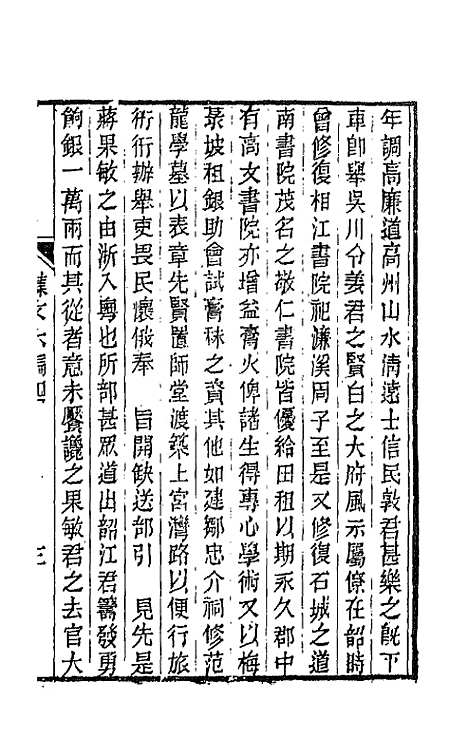 年調高廉道高州山水清遠士信民敦君甚樂之旣下
車卽舉吳川令姜君之賢白之大府風示屬僚在韶時
曾修復相江書院祀濂溪周子至是又修復石城之道
南書院茂名之敬仁書院皆優給田租以期永久郡中
有高文書院亦增益膏火俾諸生得專心學術又以梅
菉坡租銀助會試膏秣之資其他如建鄒忠介祠修范
龍學墓以表章先賢置師堂渡築上宮灣路以便行旅
術術辦舉吏畏民懷俄奉　旨開缺送部引　見先是
蔣果敏之由浙入粵也所部甚眾道出韶江君籌發勇
餉銀一萬兩而其從者意未饜讒之果敏君之去官大
雜文六編四
三